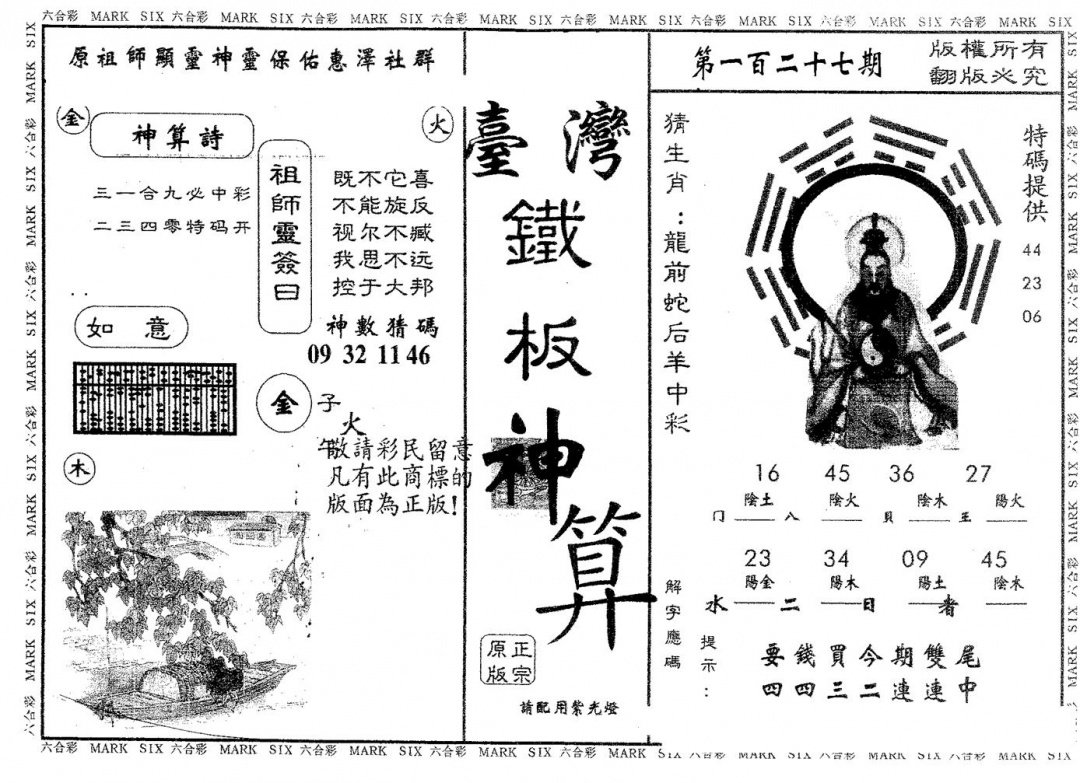 六合彩 MARK SIX 六合彩 MARK SIX 六合彩 MARK SIX 六合彩 MARK SIX 六合彩 MARK SIX 六合彩 MARK SIX 六合彩 MARK SIX 六合彩 MARK SIX
原祖師顯靈神靈保佑惠澤社群
金
神算詩
火
三一合九必中彩
二三四零特码开
祖師靈簽曰
既不它喜
不能旋反
视尔不臧
我思不远
控于大邦
神數猜碼
09 32 11 46
如意
金
子
火
午
敬請彩民留意
凡有此商標的
版面為正版!
木
臺灣
鐵
板
神
算
正宗
原版
請配用紫光燈
第一百二十七期
版權所有
翻版必究
猜生肖:龍前蛇后羊中彩
特碼提供
44
23
06
16 45 36 27
陰土 陰火 陰木 陽火
门 八 貝 王
23 34 09 45
陽金 陽木 陽土 陰木
水 二 日 者
解字應碼
提示:
要錢買今期雙尾
四四三二連連中
六合彩 MARK SIX 六合彩 MARK SIX 六合彩 MARK SIX 六合彩 MARK SIX 六合彩 MARK SIX